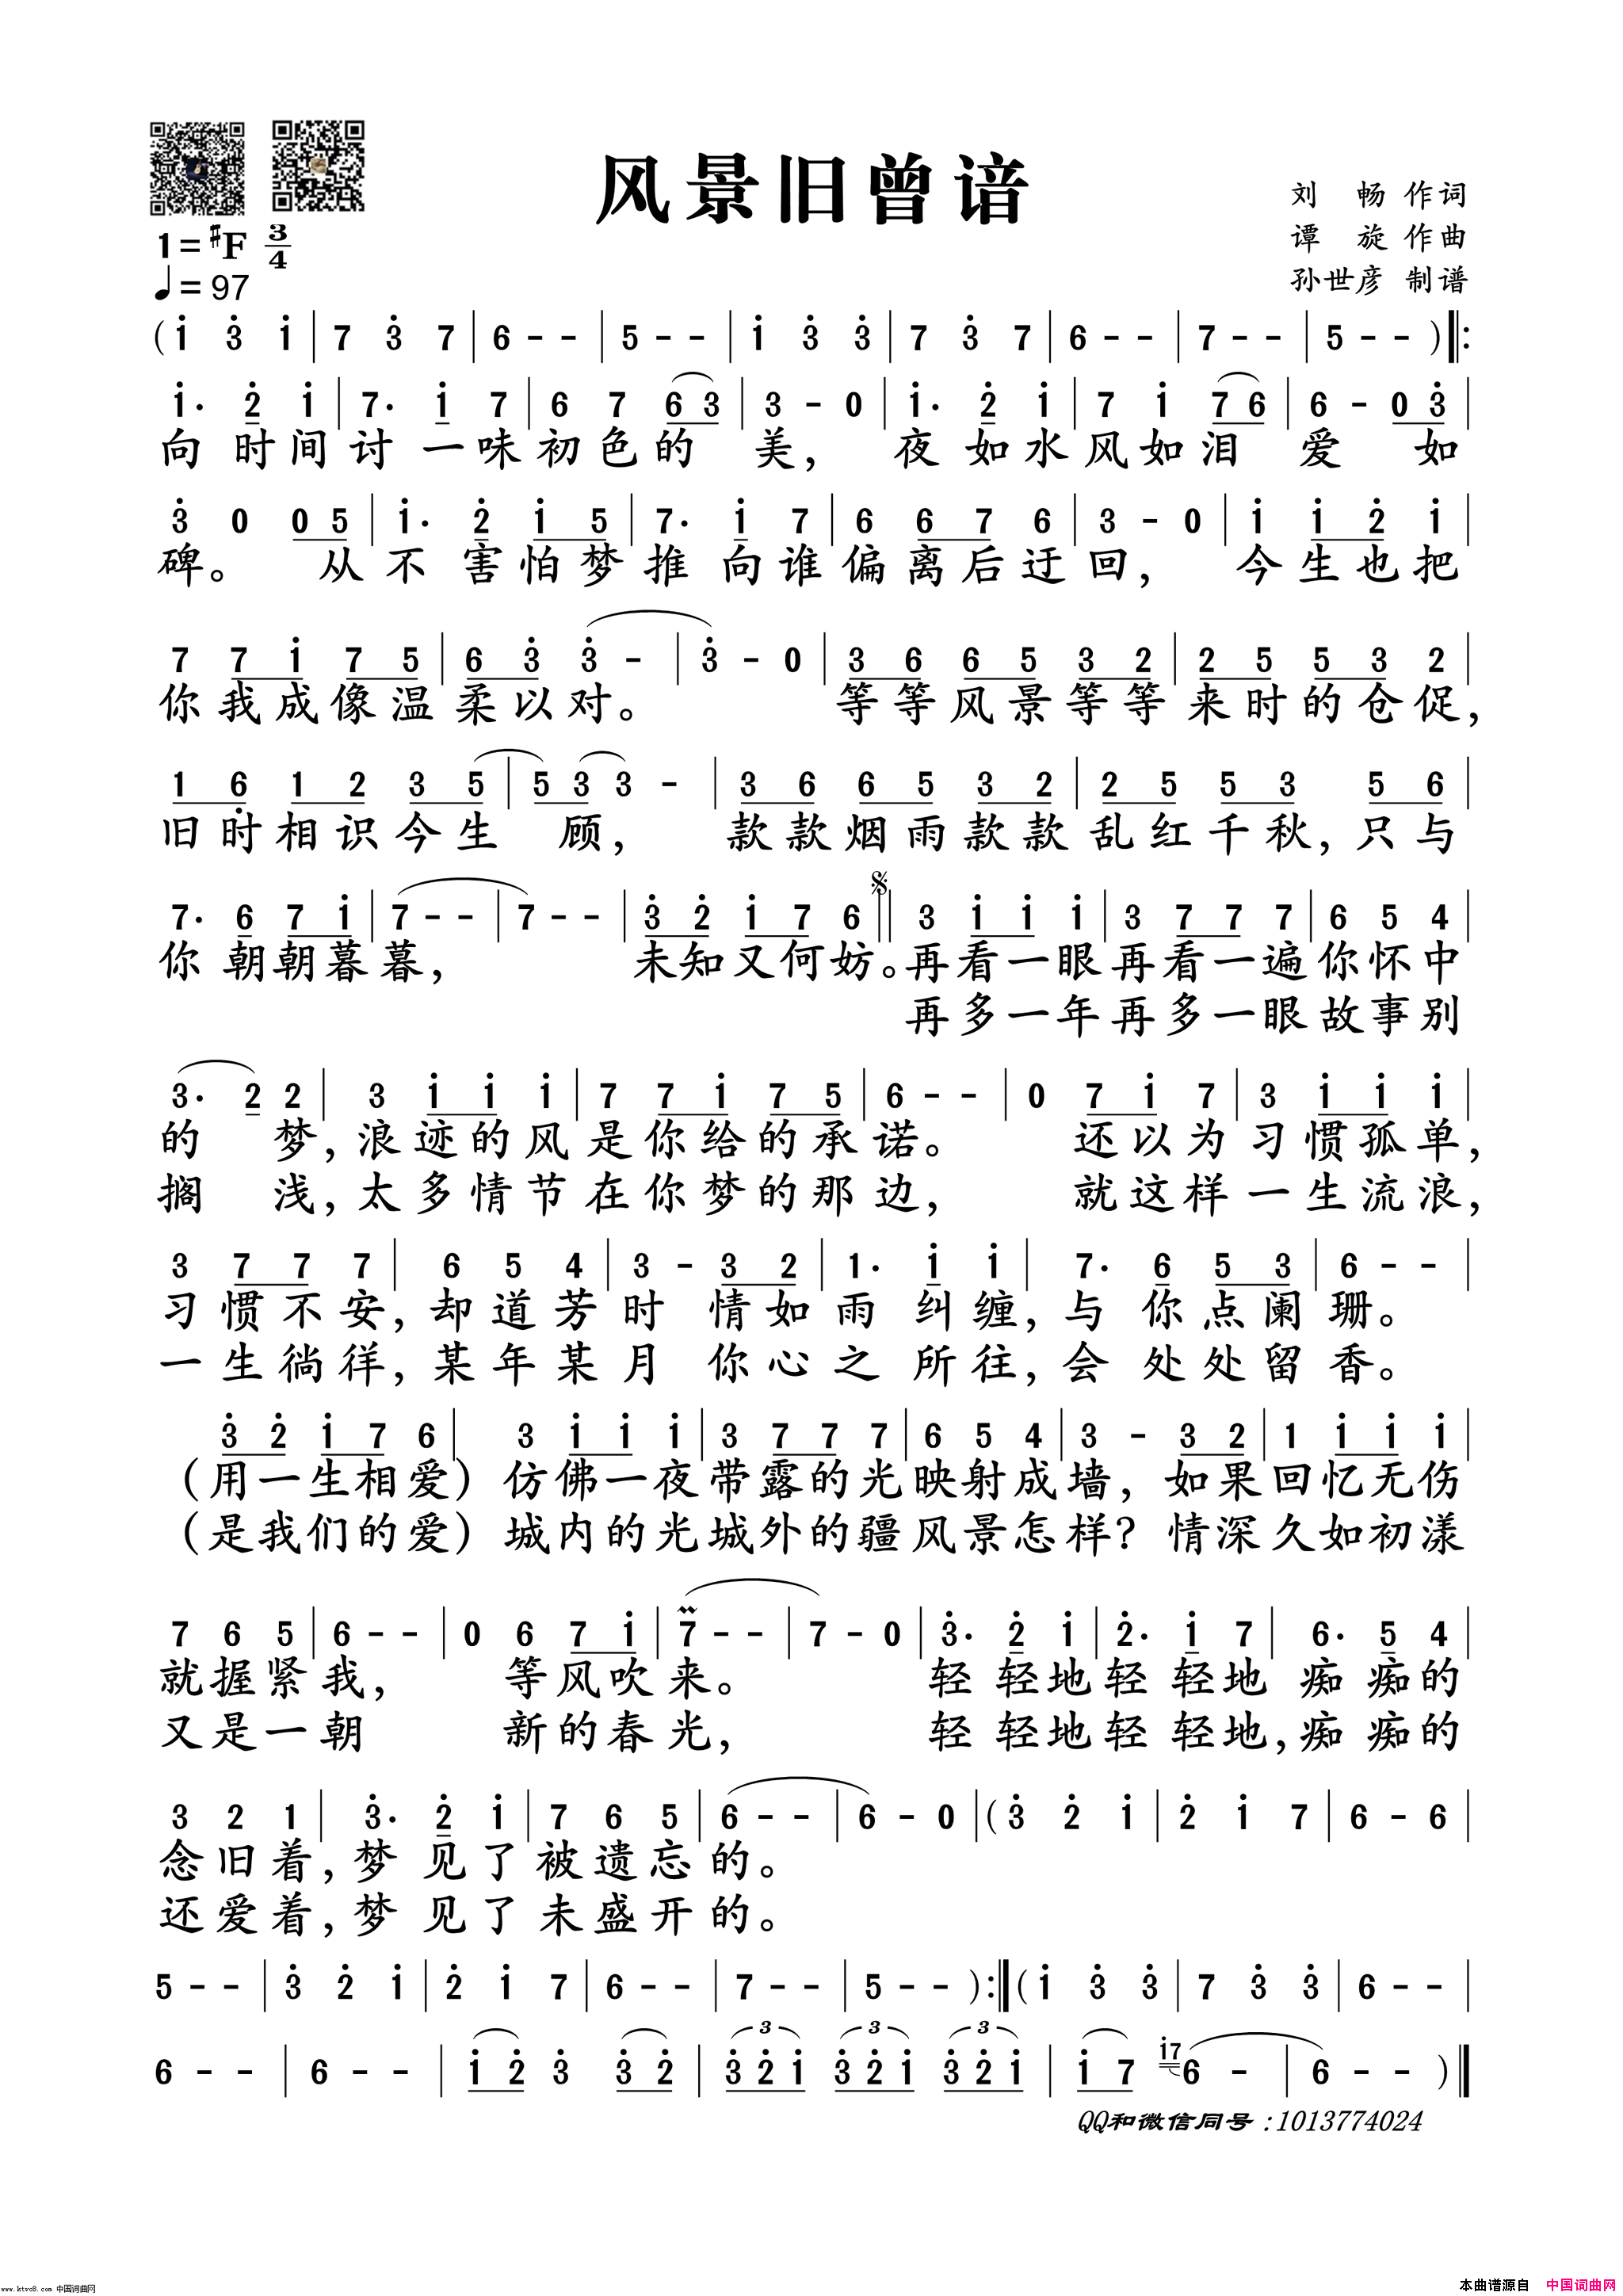 风景旧曾谙
刘 畅 作词
谭 旋 作曲
孙世彦 制谱
1=♯F 3/4
♩=97
(i̇ 3̇ i̇ | 7 3̇ 7 | 6 - - | 5 - - | i̇ 3̇ 3̇ | 7 3̇ 7 | 6 - - | 7 - - | 5 - - )‖:
i̇. 2̇ i̇ | 7. i̇ 7 | 6 7 6 3 | 3 - 0 | i̇. 2̇ i̇ | 7 i̇ 7 6 | 6 - 0 3̇ |
向 时间讨 一味初色的 美, 夜 如水风如泪 爱 如
3̇ 0 0 5 | i̇. 2̇ i̇ 5 | 7. i̇ 7 | 6 6 7 6 | 3 - 0 | i̇ i̇ 2̇ i̇ |
碑。 从不 害怕梦推 向谁偏离后迂回, 今生也把
7 7 i̇ 7 5 | 6 3̇ 3̇ - | 3̇ - 0 | 3 6 6 5 3 2 | 2 5 5 3 2 |
你我成像温柔以对。 等等风景等等来时的仓促,
1 6̣ 1 2 3 5 | 5 3 3 - | 3 6 6 5 3 2 | 2 5 5 3 5 6 |
旧时相识今生 顾, 款款烟雨款款乱红千秋,只与
7. 6 7 i̇ | 7 - - | 7 - - | 3̇ 2̇ i̇ 7 6 ‖ 3 i̇ i̇ i̇ | 3 7 7 7 | 6 5 4 |
你 朝朝暮暮, 未知又何妨。再看一眼再看一遍你怀中
再多一年再多一眼故事别
3. 2 2 | 3 i̇ i̇ i̇ | 7 7 i̇ 7 5 | 6 - - | 0 7 i̇ 7 | 3 i̇ i̇ i̇ |
的 梦,浪迹的风是你给的承诺。 还以为习惯孤单,
搁 浅,太多情节在你梦的那边, 就这样一生流浪,
3 7 7 7 | 6 5 4 | 3 - 3 2 | 1. i̇ i̇ | 7. 6 5 3 | 6 - - |
习惯不安,却道芳时 情如雨 纠缠,与 你点阑珊。
一生徜徉,某年某月 你心之 所往,会 处处留香。
3̇ 2̇ i̇ 7 6 | 3 i̇ i̇ i̇ | 3 7 7 7 | 6 5 4 | 3 - 3 2 | 1 i̇ i̇ i̇ |
(用一生相爱)仿佛一夜带露的光映射成墙,如果回忆无伤
(是我们的爱)城内的光城外的疆风景怎样?情深久如初漾
7 6 5 | 6 - - | 0 6 7 i̇ | 7 - - | 7 - 0 | 3̇. 2̇ i̇ | 2̇. i̇ 7 | 6. 5 4 |
就握紧我, 等风吹来。 轻 轻地轻 轻地 痴 痴的
又是一朝 新的春光, 轻 轻地轻 轻地,痴 痴的
3 2 1 | 3̇. 2̇ i̇ | 7 6 5 | 6 - - | 6 - 0 | (3̇ 2̇ i̇ | 2̇ i̇ 7 | 6 - 6 |
念旧着,梦 见了被遗忘的。
还爱着,梦 见了未盛开的。
5 - - | 3̇ 2̇ i̇ | 2̇ i̇ 7 | 6 - - | 7 - - | 5 - - ):‖(i̇ 3̇ 3̇ | 7 3̇ 3̇ | 6 - - |
6 - - | 6 - - | i̇ 2̇ 3̇ 3̇ 2̇ | 3̇ 2̇ i̇ 3̇ 2̇ i̇ 3̇ 2̇ i̇ | i̇ 7 i̇7 6 - | 6 - - )‖
QQ和微信同号:1013774024
www.ktvc8.com 中国词曲网
本曲谱源自 中国词曲网